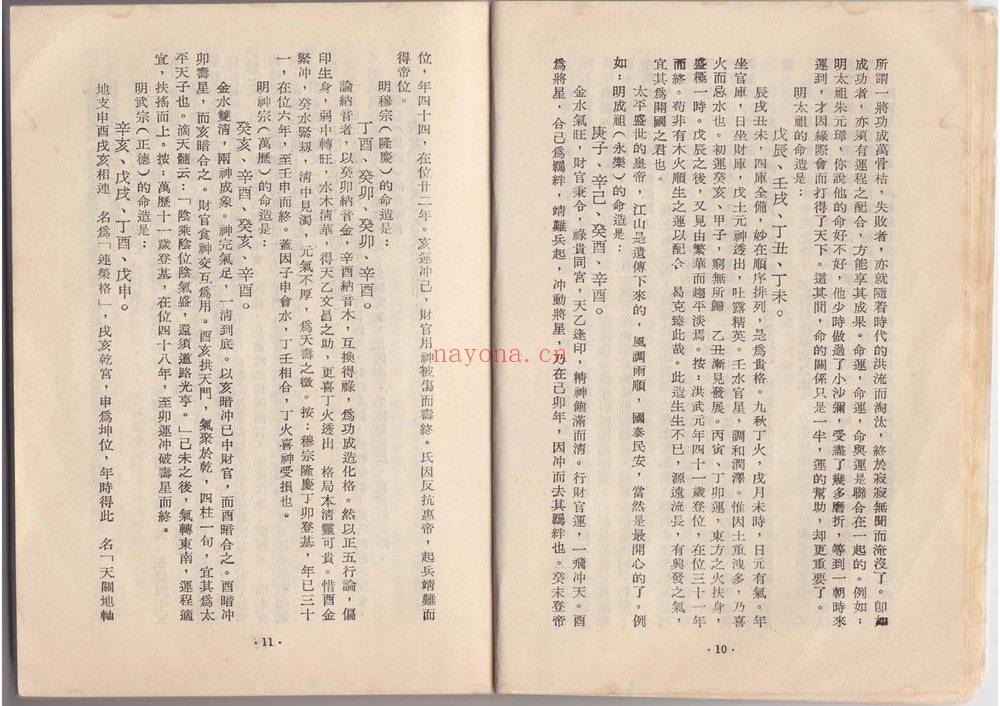 所謂一將功成萬骨枯，失敗者，亦就隨着時代的洪流而淘汰，終於寂寂無聞而淹沒了。卽
成功者，亦須有運程之配合，方能享其成果。命運，命運，命與運是聯合在一起的。例如：
明太祖朱元璋，你說他的命好不好，他少時做過了小沙彌，受盡了幾多磨折，等到一朝時來
運到，才因緣際會而打得了天下。這其間，命的關係只是一半，運的幫助，却更重要了。
明太祖的命造是：
戊辰、壬戌、丁丑、丁未。
辰戌丑未，四庫全備，妙在順序排列，是爲貴格。九秋丁火，戌月未時，日元有氣。年
坐官庫，日坐財庫，戊土元神透出，吐露精英。壬水官星，調和潤澤。惟因土重洩多，乃喜
火而忌水也。初運癸亥、甲子，窮無所歸，乙丑漸見發展。丙寅、丁卯運，東方之火扶身，
盛極一時。戊辰之後，又見由繁華而趨平淡焉。按：洪武元年四十一歲登位，在位三十一年
而終。苟非有木火順生之運以配合，曷克臻此哉。此造生生不已，源遠流長，有興發之氣，
宜其爲開國之君也。
太平盛世的皇帝，江山是遺傳下來的，風調雨順，國泰民安，當然是最開心的了。例
如：明成祖（永樂）的命造是：
庚子、辛巳、癸酉、辛酉。
金水氣旺，財官秉令，祿貴同宮，天乙逢印，精神飽滿而清。行財官運，一飛冲天。酉
爲將星，合己爲羈絆，靖難兵起，冲動將星，乃在己卯年，因冲而去其羈絆也。癸未登帝
位，年四十四，在位廿二年。亥運冲己，財官用神被傷而壽終。氏因反抗惠帝，起兵靖難而
得帝位。
明穆宗（隆慶）的命造是：
丁酉、癸卯、癸卯、辛酉。
論納音者，以癸卯納音金，辛酉納音木，互換得祿，爲功成造化格。然以正五行論，偏
印生身，弱中轉旺，水木清華，得天乙文昌之助，更喜丁火透出，格局本清靈可貴。惜酉金
緊冲，癸水緊刼，清中見濁，元氣不厚，爲夭壽之徵。按：穆宗隆慶丁卯登基，年已三十
一，在位六年，至壬申而終。蓋因子申會水，丁壬相合，丁火喜神受損也。
明神宗（萬歷）的命造是：
癸亥、辛酉、癸亥、辛酉。
金水雙清，兩神成象。神完氣足，一清到底。以亥暗冲巳中財官，而酉暗合之。酉暗冲
卯壽星，而亥暗合之。財官食神交互爲用。酉亥拱天門，氣聚於乾，四柱一旬，宜其爲太
平天子也。滴天髓云：「陰乘陰位陰氣盛，還須道路光亨。」己未之後，氣轉東南，運程適
宜，扶搖而上。按：萬歷十一歲登基，在位四十八年，至卯運冲破壽星而終。
明武宗（正德）的命造是：
辛亥、戊戌、丁酉、戊申。
地支申酉戌亥相連，名爲「連榮格」，戌亥乾宮，申爲坤位，年時得此，名「天關地軸
·10·
·11·
nayona.cn